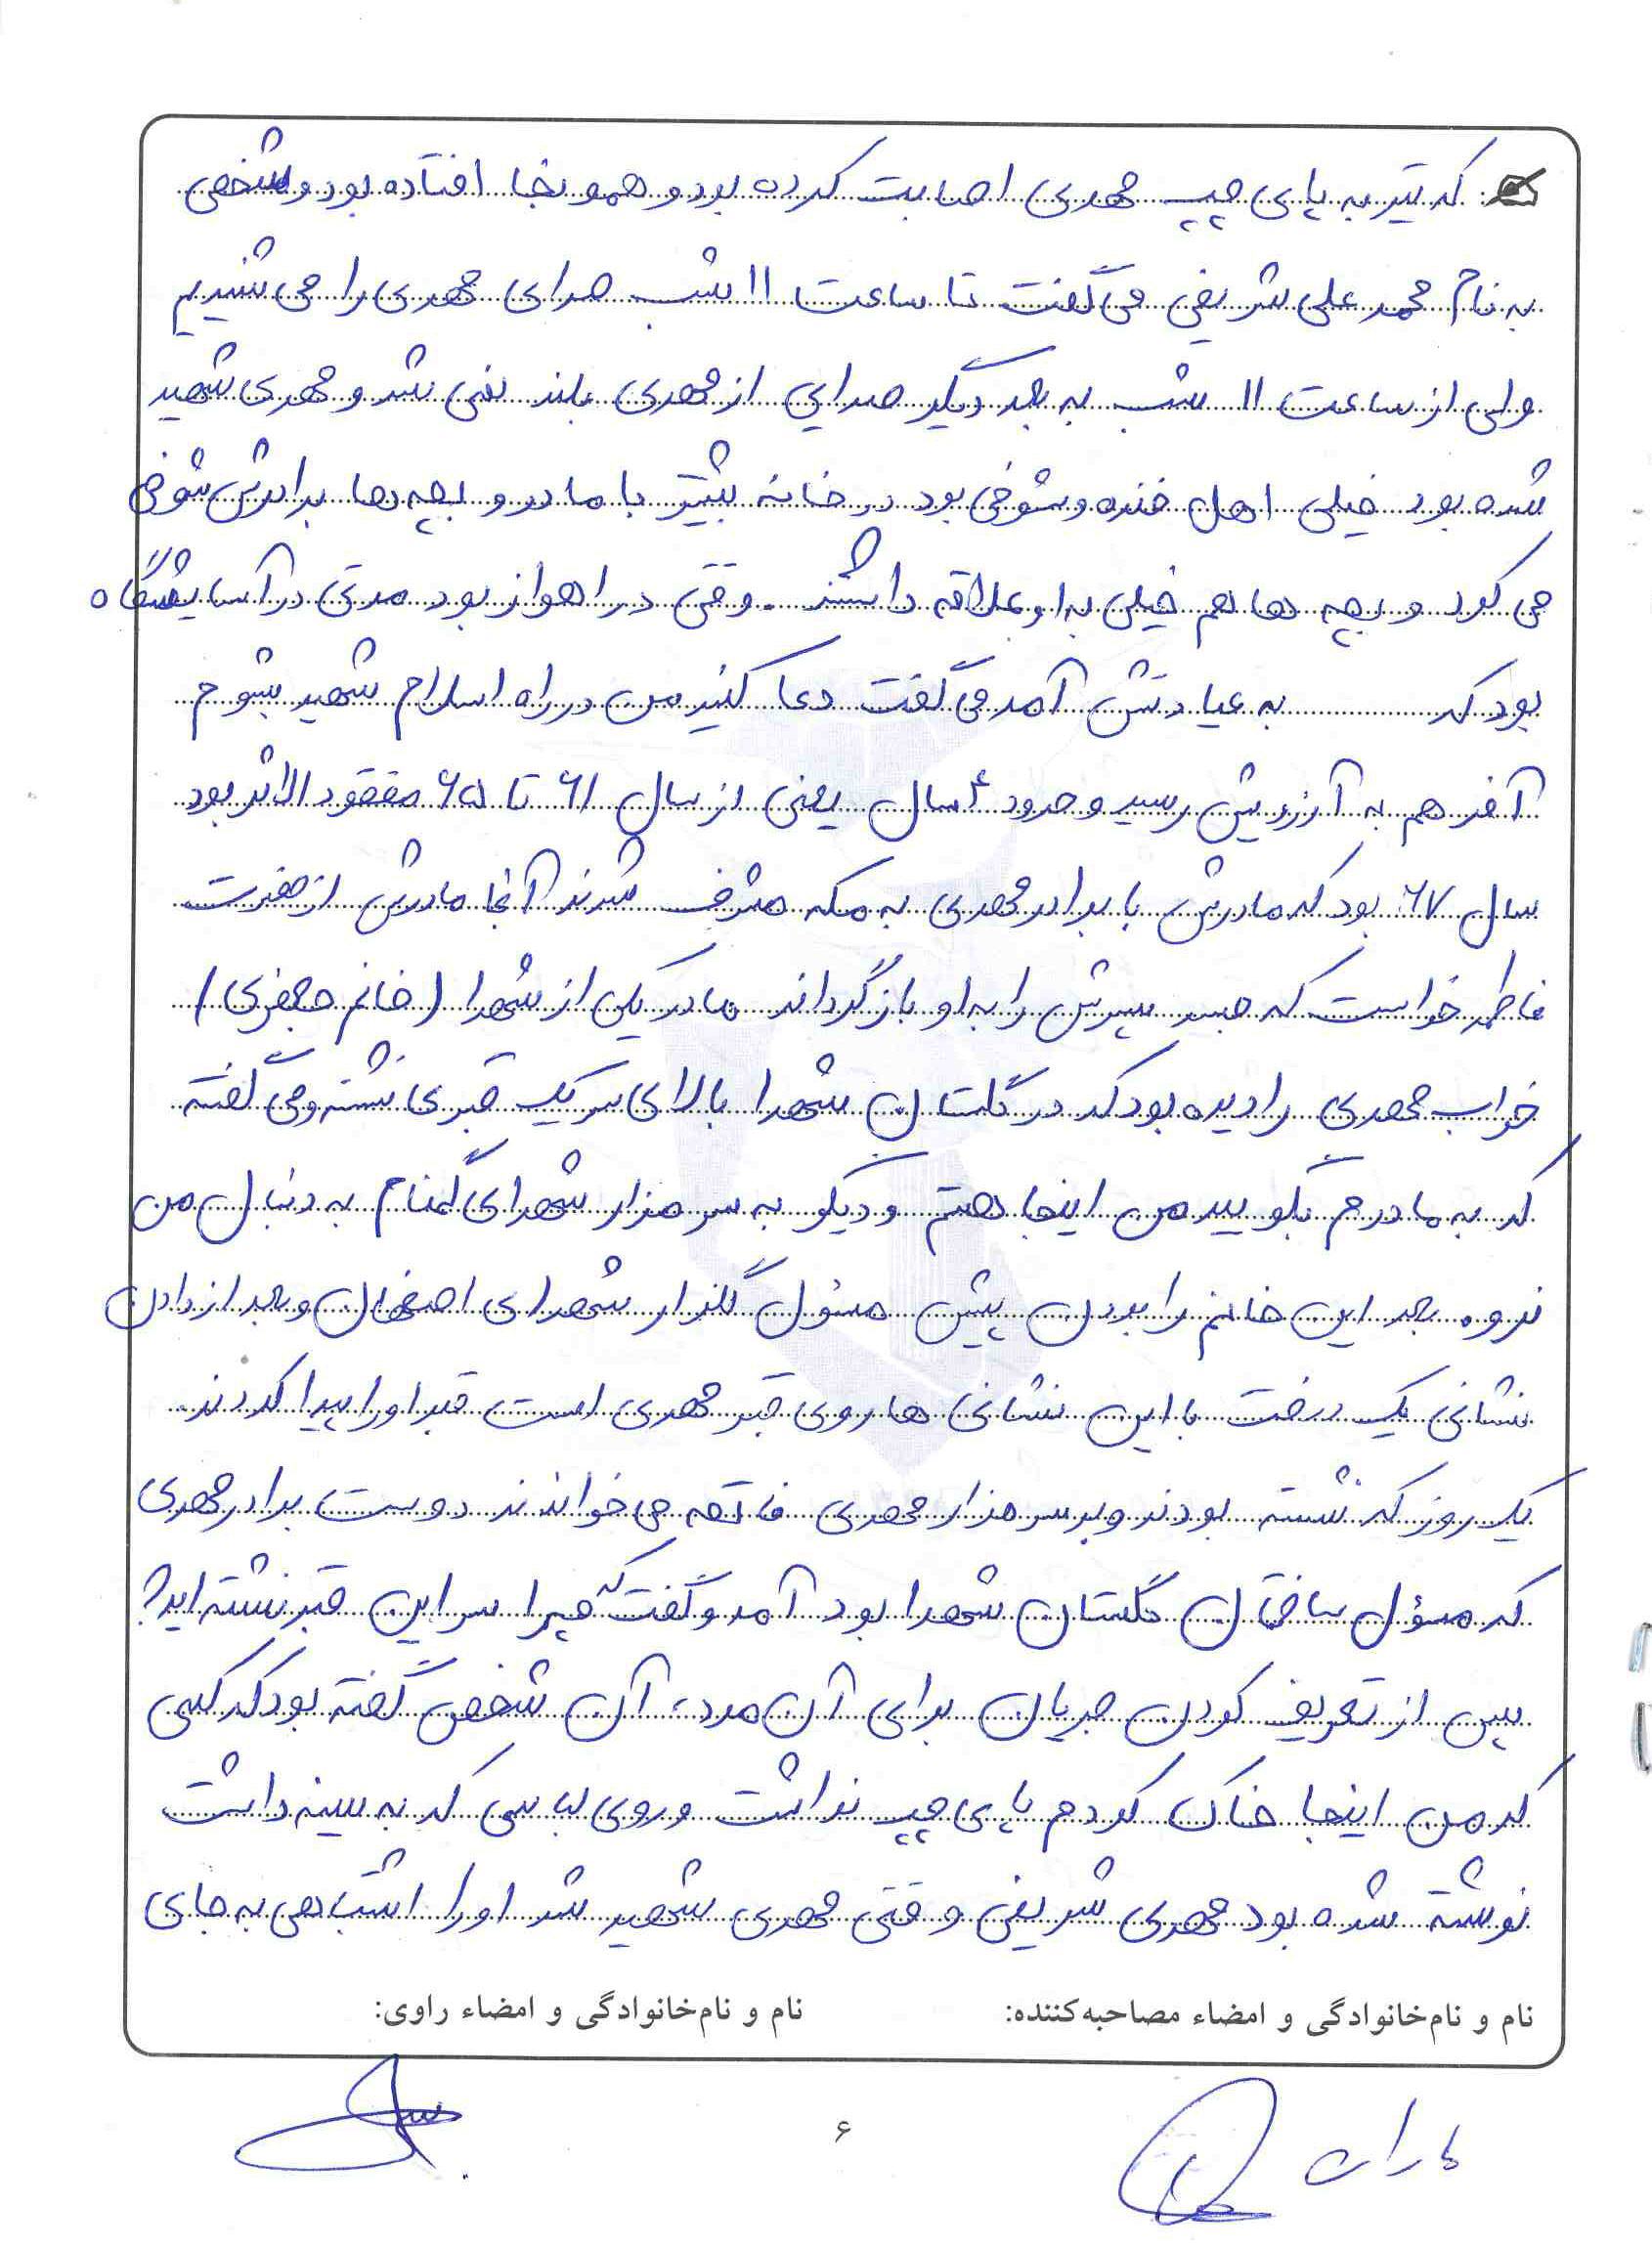 که تیر به پای چپ مهدی اصابت کرده بود و همونجا افتاده بود و شخصی
به نام محمد علی شریفی می گفت تا ساعت ۱۱ شب صدای مهدی را می شنیدیم
ولی از ساعت ۱۱ شب به بعد دیگر صدایی از مهدی بلند نمی شد و مهدی شهید
شده بود خیلی اهل خنده و شوخی بود در خانه بیشتر با مادر و بچه ها برادرش شوخی
می کرد و بچه ها هم خیلی به او علاقه داشتند. وقتی در اهواز بود مدتی در آسایشگاه
بود که به عیادتش آمد می گفت دعا کنید من در راه اسلام شهید بشوم
آخر هم به آرزویش رسید و حدود ۴ سال یعنی از سال ۶۱ تا ۶۵ مفقود الاثر بود
سال ۶۷ بود که مادرش با برادر مهدی به مکه مشرف شدند آنجا مادرش از حضرت
فاطمه خواست که جسد پسرش را به او بازگرداند مادر یکی از شهدا (خانم جعفری)
خواب مهدی را دیده بود که در گلستان شهدا بالای سر یک قبری نشسته و می گفته
که به مادرم بگویید من اینجا هستم و دیگر به سر مزار شهدای گمنام به دنبال من
نروه بعد این خانم را بردن پیش مسئول گلزار شهدای اصفهان و بعد از دادن
نشانی یک درخت با این نشانی ها روی قبر مهدی است قبر او را پیدا کردند.
یک روز که نشسته بودند و بر سر مزار مهدی فاتحه می خواندند دوست برادر مهدی
که مسؤل ساختمان گلستان شهدا بود آمد و گفت که چرا سر این قبر نشسته اید؟
سپس از تعریف کردن جریان برای آن مرد، آن شخص گفته بود که کسی
که من اینجا خاک کردم پای چپ نداشت و روی لباسی که به سینه داشت
نوشته شده بود مهدی شریفی وقتی مهدی شهید شد او را اشتباهی به جای
نام و نام‌خانوادگی و امضاء مصاحبه‌کننده: نام و نام‌خانوادگی و امضاء راوی:
۶